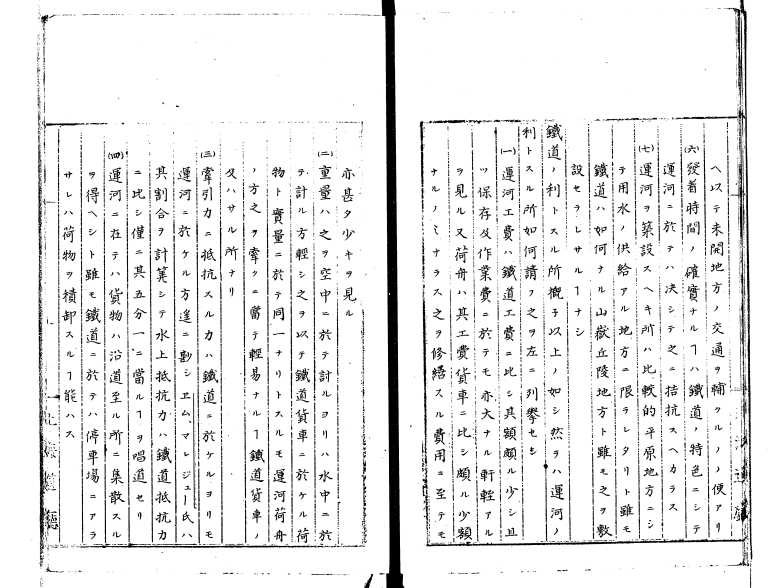 ヘ以テ未開地方ノ交通ヲ補ウルノノ便アリ
(六)發着時間ノ確實ナルヿハ鐵道ノ特色ニシテ
運河ニ於テハ決シテ之ニ拮抗スヘカラス
(七)運河ヲ築設スヘキ所ハ比較的平原地方ニシ
テ用水ノ供給アル地方ニ限ラレタリト雖モ
鐵道ハ如何ナル山嶽丘陵地方ト雖モ之ヲ敷
設セラレサルヿナシ
鐵道ノ利トスル所概子以上ノ如シ然ラハ運河ノ
利トスル所如何請フ之ヲ左ニ列擧セン
(一)運河工費ハ鐵道工費ニ比シ其額頗ル少シ且
ツ保存及作業費ニ於テモ亦大ナル軒輊アル
ヲ見ル又荷舟ハ其工費貨車ニ比シ頗ル少額
ナルノミナラス之ヲ修繕スル費用ニ至テモ
亦甚タ少キヲ見ル
(二)重量ハ之ヲ空中ニ於テ計ルヨリハ水中ニ於
テ計ル方輕シ之ヲ以テ鐵道貨車ニ於ケル荷
物ト實量ニ於テ同一ナリトスルモ運河荷舟
ノ方之ヲ牽クニ當テ輕易ナルヿ鐵道貨車ノ
及ハサル所ナリ
(三)牽引力ニ抵抗スル力ハ鐵道ニ於ケルヨリモ
運河ニ於ケル方遙ニ尠シエム、マレジュー氏ハ
其割合ヲ計算シテ水上抵抗力ハ鐵道抵抗力
ニ比シ僅ニ其五分一ニ當ルヿヲ唱道セリ
(四)運河ニ在テハ貨物ハ沿道至ル所ニ集散スル
ヲ得ヘシト雖モ鐵道ニ於テハ停車場ニアラ
サレハ荷物ヲ積卸スルヿ能ハス